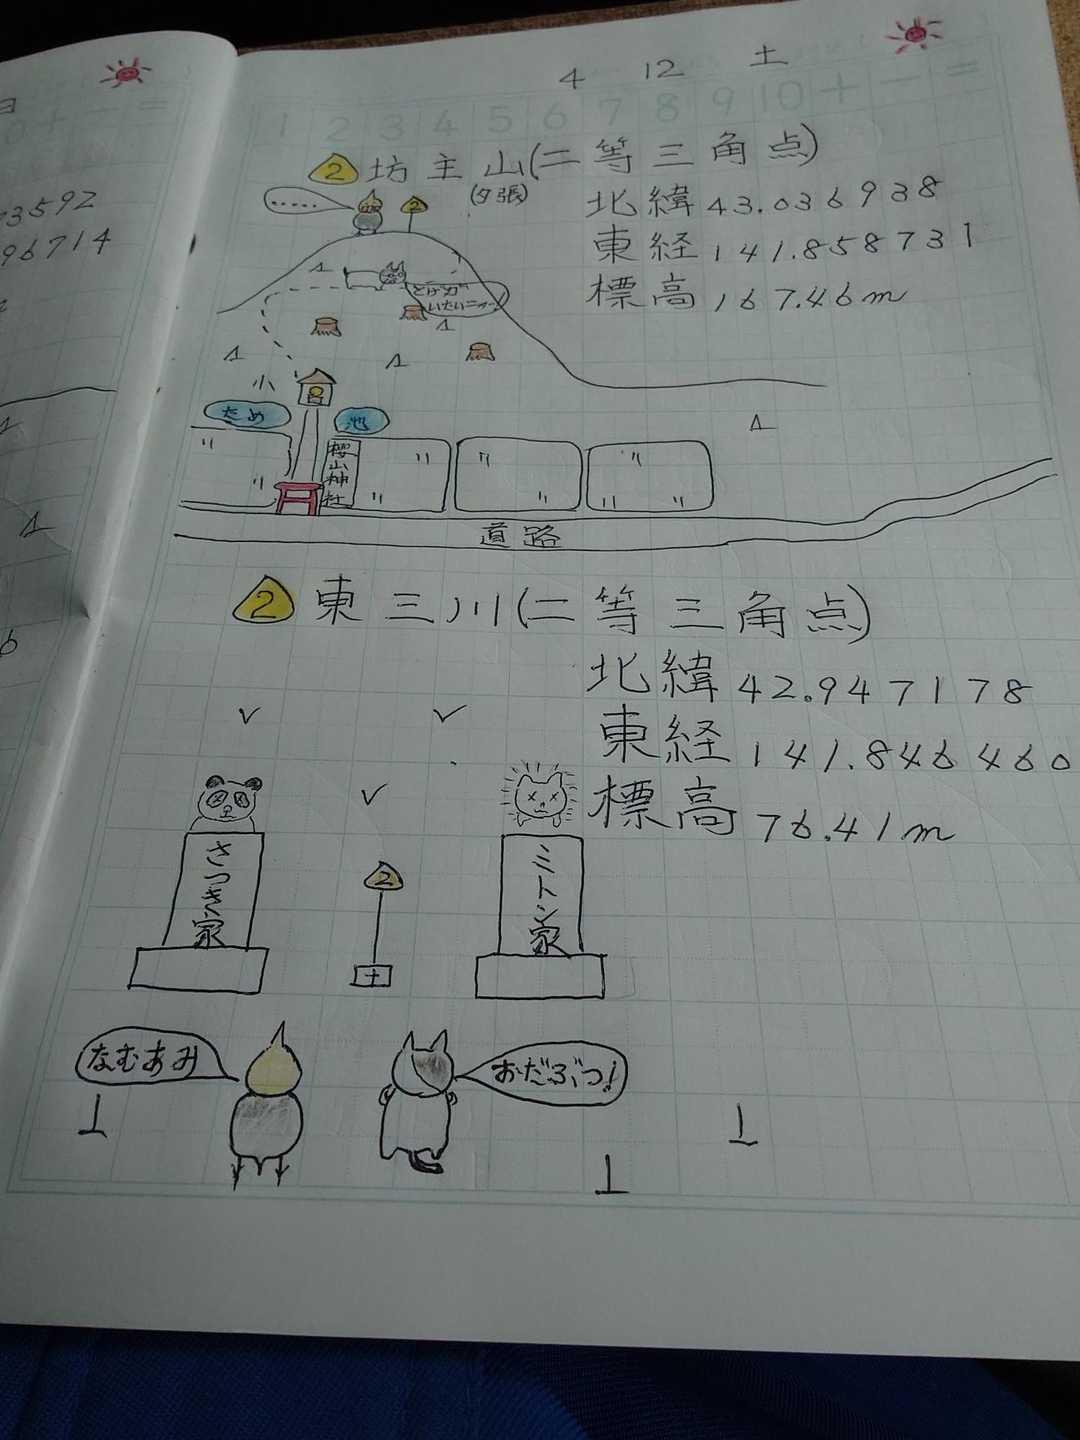 4 12 土
1 2 3 4 5 6 7 8 9 10 + - =
2 坊主山(二等三角点)
(夕張)
北緯 43.036938
東経 141.858731
標高 167.46m
.....
2
とげが
いたいニャー
小
ため
池
桜山神社
道路
2 東三川(二等三角点)
北緯 42.947178
東経 141.846460
標高 76.41m
さつき家
2
ミトン家
なむあみ
おだぶつ!
日
0 + - =
73592
96714